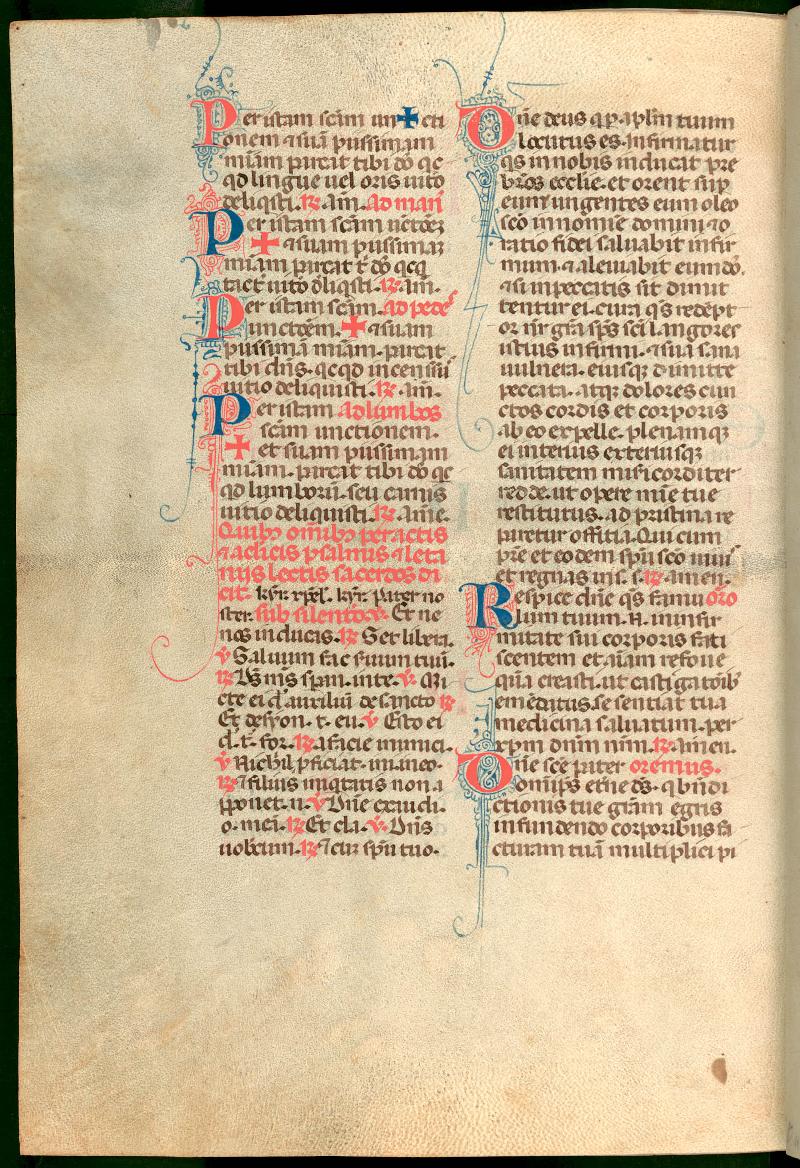 Per istam scām un✠cti
onem ⁊ suā piissimam
mīam parcat tibi dō qc
qd lingue uel oris uitio
deliqsti. ℟. am̄. Ad man̄
Per istam scām
✠ ⁊ suam piissimaȝ
mīam parcat t̄ dō qcq
tact uitio dliqsti. ℟. am̄.
Per istam scām. ad pede
unctōem. ✠ ⁊ suam
piissimā mīam. parcat
tibi dn̄s. qcqd incessū
uitio deliquisti. ℟. am̄.
Per istam ad lumbos
scām unctionem.
✠ et suam piissimam
mīam. parcat tibi dō qc
qd lumborū. seu carnis
uitio deliquisti. ℟. am̄e.
Quibꝰ om̄ibꝰ peractis
⁊ adictis psalmis ⁊ leta
niis lectis sacerdos di
cit. kyr̄. xp̄el. kyr̄. Pater no
ster. sub silentio. ℣. Et ne
nos inducas. ℟. Set libera.
℣ Saluum fac seruum tuū.
℟. Ds̄ ms̄ span. in te. ℣. Mi
cte ei d̄ auxiliū de sancto ℟
Et desyon. t. eu. ℣ Esto ei
d. t. for. ℟. a facie inimici.
℣ Nichil p̄ficiat. inimico.
℟. ⁊ filius iniqtatis non a
pponet. n. ℣ Dn̄e exaudi.
o. meā. ℟ Et cla. ℣. Dn̄s
uobcum. ℟ ⁊ cum spū tuo.
Dn̄e deus q p. apl̄m tuum
locutus es. infirmatur
qs in nobis inducat pre
bros ecclīe. et orent sup
eum ungentes eum oleo
scō in nomīe domini ⁊ o
ratio fidei saluabit infir
mum. ⁊ aleuiabit eum dō.
⁊ si in peccatis sit dimit
tentur ei. cura qs redēpt
or nr̄ gr̄a sp̄s scī langores
istius infirmi. ⁊ sua sana
uulnera. eiusqȝ dimitte
peccata. atqȝ dolores cun
ctos cordis et corporis
ab eo expelle. plenamqȝ
ei interius exteriusqȝ
sanitatem misericorditer
redde. ut opere mīe tue
restitutus. ad pristina re
paretur offitia. Qui cum
pr̄e et eodem spū scō uiuis
et regnas ds. ℟. amen.
Respice dn̄e qs famu oro
lum tuum. N. in infir
mitate sui corporis fati
scentem et aīam refoue
quā creasti. ut castigatōibꝰ
emēdatus. se sentiat tua
medicina saluatum. per
xpm dn̄m nr̄m. ℟. amen.
Dn̄e scē pater oremus.
omīps etn̄e ds̄. q bn̄di
ctionis tue gr̄am egris
infundendo corporibus fa
cturam tuā multiplici pi